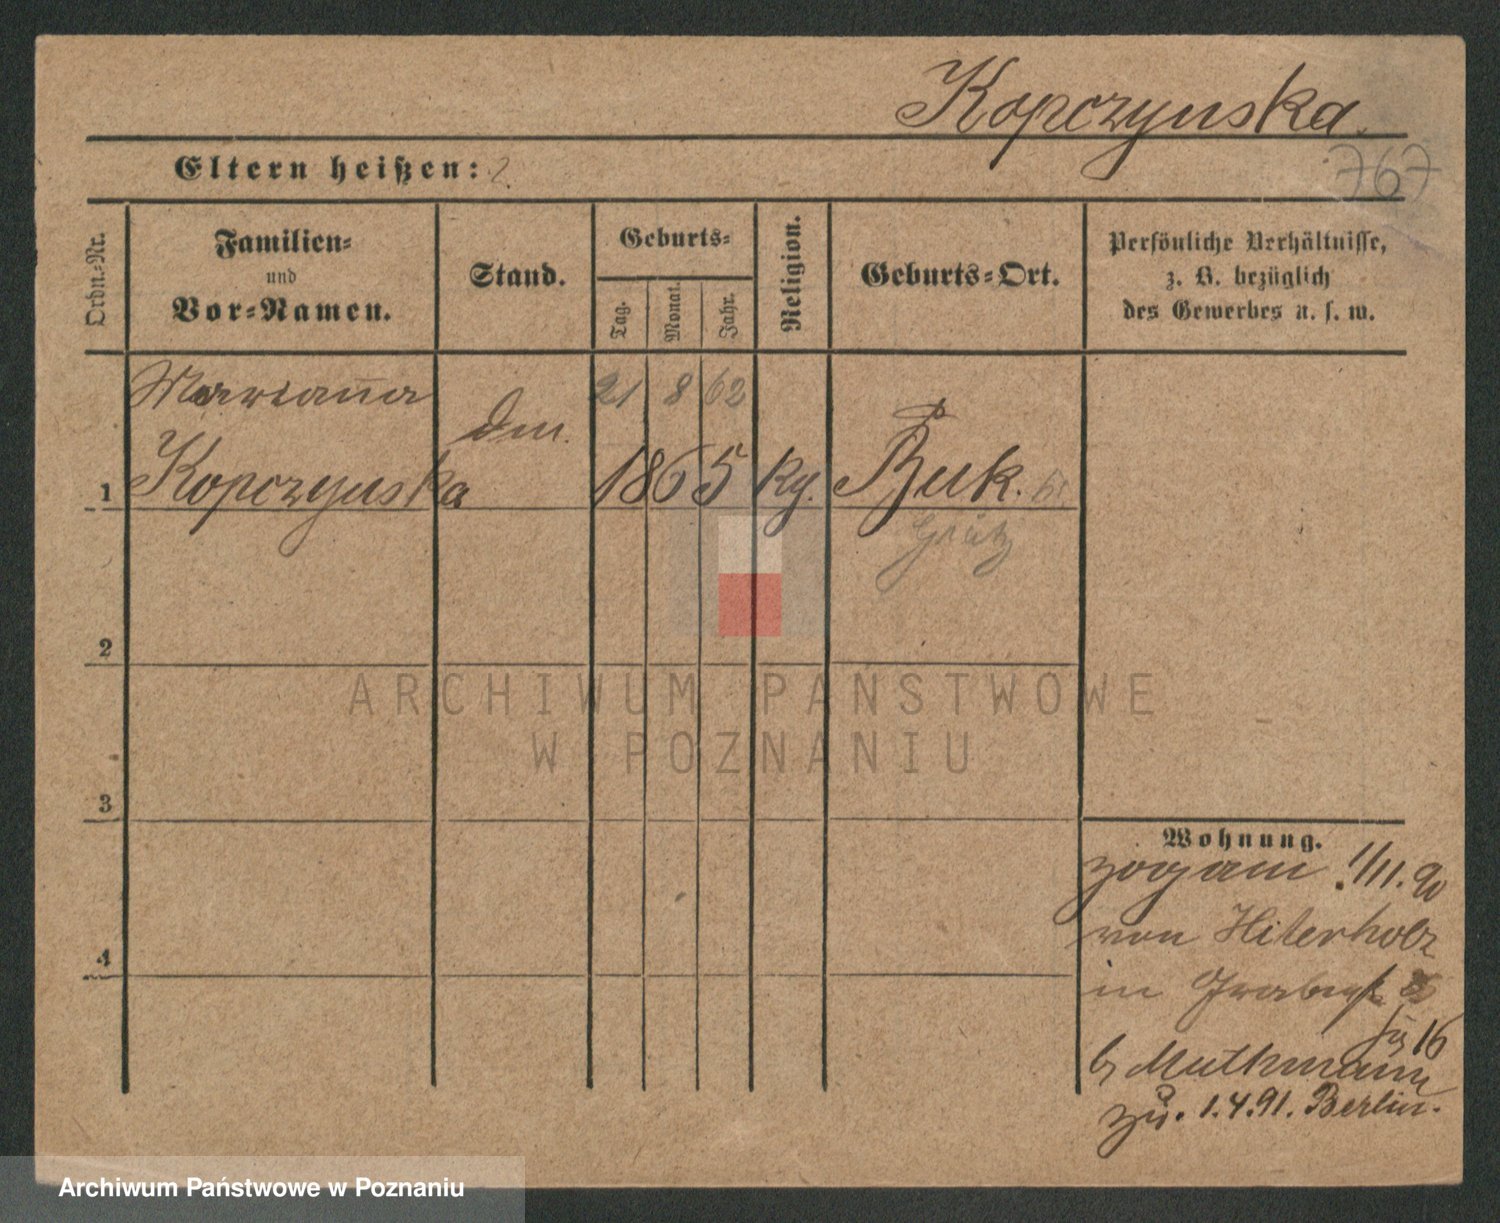 Kopczynska.
767
Eltern heißen: ?
Ordn.-Nr.
Familien-
und
Vor-Namen.
Stand.
Geburts-
Tag.
Monat.
Jahr.
Religion.
Geburts-Ort.
Persönliche Verhältnisse,
z. B. bezüglich
des Gewerbes u. s. w.
Marianna 21 8 62
1 Kopczynska 1865 Buk.
Grätz
2
3
4
ARCHIWUM PAŃSTWOWE
W POZNANIU
Wohnung.
zog am 1/11. 90
von Hiterholz
in
16
b Muthmann
1.4.91. Berlin.
Archiwum Państwowe w Poznaniu